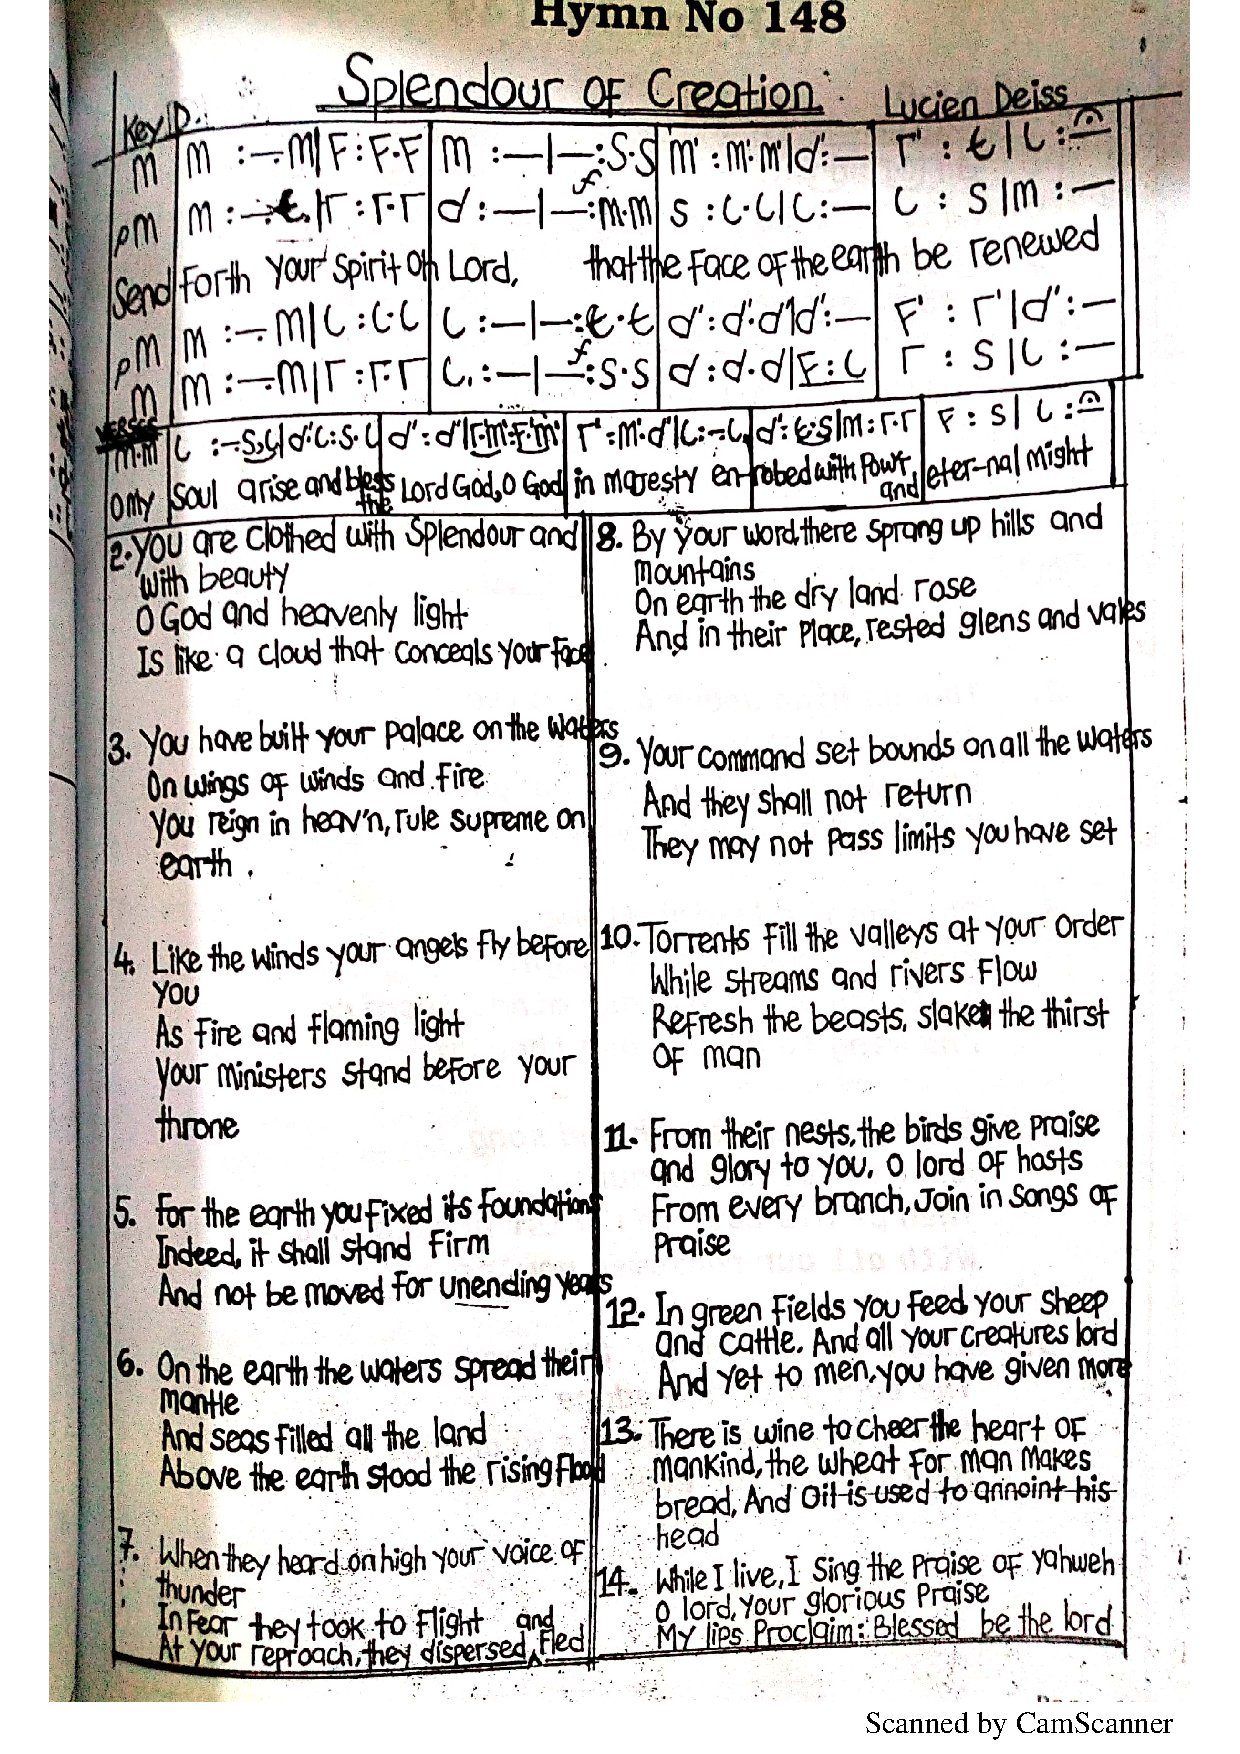 Hymn No 148
Splendour of Creation
Lucien Deiss
Key D.
m m :–.m|f :f.f m :–|–:s.s m' :m'.m'|d' :– r' : t|l :–
pm m :–.t,|r :r.r d :–|–:m.m s :l.l|l :– l : s|m :–
Send forth your Spirit oh Lord, that the face of the earth be renewed
pm m :–.m|l :l.l l :–|–:t.t d' :d'.d'|d' :– f' : r'|d' :–
m m :–.m|r :r.r l, :–|–:s.s d :d.d|f : l r : s|l :–
VERSES
m.m l :–.s,l|d'.l:s.l d' : d'|r'.m':f'.m' r' :m'.d'|l :–.l, d' : t.s|m : r.r f : s| l :
O my soul arise and bless the Lord God, O God in majesty en-robed with Powr, and eter-nal might
2. You are clothed with Splendour and
with beauty
O God and heavenly light
Is like a cloud that conceals your face
3. You have built your palace on the waters
On wings of winds and fire
You reign in heav'n, rule supreme on
earth.
4. Like the winds your angels fly before
you
As fire and flaming light
Your ministers stand before your
throne
5. For the earth you fixed its foundations
Indeed, it shall stand firm
And not be moved for unending years
6. On the earth the waters spread their
mantle
And seas filled all the land
Above the earth stood the rising flood
7. When they heard on high your voice of
thunder
In fear they took to flight
At your reproach, they dispersed and fled
8. By your word, there sprang up hills and
mountains
On earth the dry land rose
And in their place, rested glens and vales
9. Your command set bounds on all the waters
And they shall not return
They may not pass limits you have set
10. Torrents fill the valleys at your order
While streams and rivers flow
Refresh the beasts, slake the thirst
of man
11. From their nests, the birds give praise
and glory to you, O lord of hosts
From every branch, Join in songs of
praise
12. In green fields you feed your sheep
and cattle. And all your creatures lord
And yet to men, you have given more
13. There is wine to cheer the heart of
mankind, the wheat for man makes
bread, And Oil is used to annoint his
head
14. While I live, I sing the praise of Yahweh
O lord, your glorious praise
My lips Proclaim: Blessed be the lord
Scanned by CamScanner